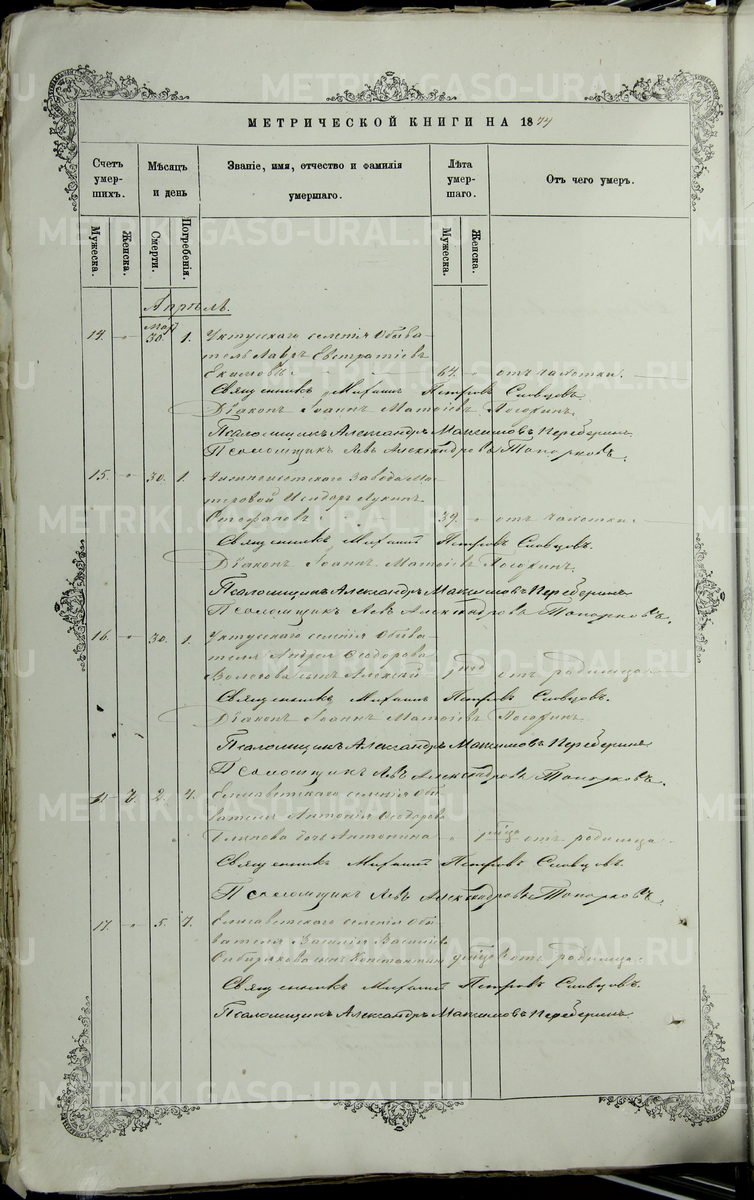 МЕТРИЧЕСКОЙ КНИГИ НА 1874
Счетъ умер- шихъ.
Мѣсяцъ и день
Званіе, имя, отчество и фамилія умершаго.
Лѣта умер- шаго.
Отъ чего умеръ.
Мужеска.
Женска.
Смерти.
Погребенія.
Мужеска.
Женска.
Апрѣль.
мар
14. 30. 1. Уктусскаго селенія Обыва-
тель Лавръ Евстратіевъ
Екимовъ. 64. отъ чахотки.
Священникъ Михаилъ Петровъ Словцовъ.
Діаконъ Іоаннъ Матѳіевъ
Псаломщикъ Александръ Максимовъ Переберинъ
Псаломщикъ Левъ Александровъ Топорковъ.
15. 30. 1. Завода Ма-
стеровой Исидоръ Лукинъ
39. отъ чахотки.
Священникъ Михаилъ Петровъ Словцовъ.
Діаконъ Іоаннъ Матѳіевъ
Псаломщикъ Александръ Максимовъ Переберинъ
Псаломщикъ Левъ Александровъ Топорковъ.
16. 30. 1. Уктусскаго селенія Обыва-
теля Андрея Ѳеодорова
сынъ Алексѣй отъ родимца
Священникъ Михаилъ Петровъ Словцовъ.
Діаконъ Іоаннъ Матѳіевъ
Псаломщикъ Александръ Максимовъ Переберинъ
Псаломщикъ Левъ Александровъ Топорковъ.
2. 4. Елисаветскаго селенія Обы-
вателя Антонія Ѳеодорова
дочь Антонина отъ родимца
Священникъ Михаилъ Петровъ Словцовъ.
Псаломщикъ Левъ Александровъ Топорковъ
17. 5. 7. Елисаветскаго селенія Обы-
вателя Василія Василіева
Сибирякова сынъ Константинъ отъ родимца.
Священникъ Михаилъ Петровъ Словцовъ.
Псаломщикъ Александръ Максимовъ Переберинъ
METRIKI.GASO-URAL.RU